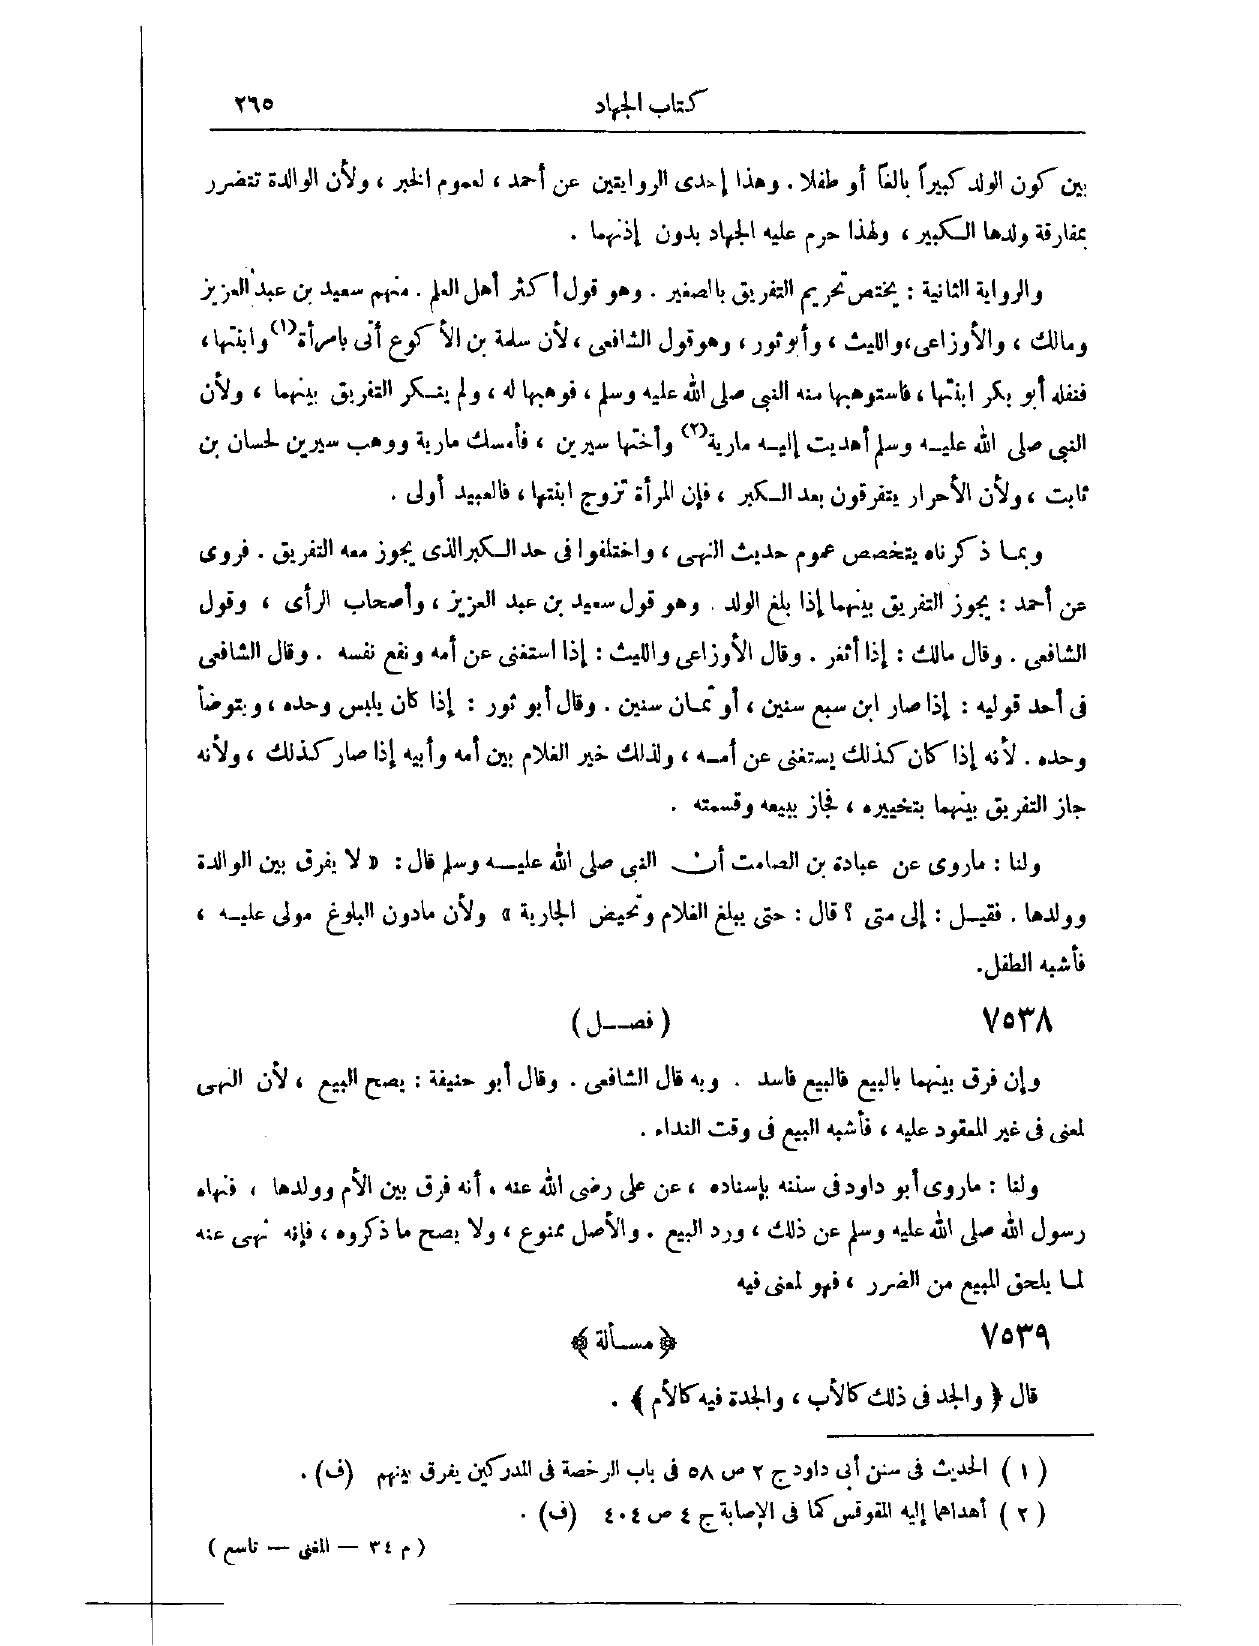 كتاب الجهاد ٢٦٥
بين كون الولد كبيراً بالغاً أو طفلا . وهذا إحدى الروايتين عن أحمد ، لعموم الخبر ، ولأن الوالدة تتضرر
بمفارقة ولدها الكبير ، ولهذا حرم عليه الجهاد بدون إذنهما .
والرواية الثانية : يختص تحريم التفريق بالصغير . وهو قول أكثر أهل العلم . منهم سعيد بن عبد العزيز
ومالك ، والأوزاعى ، والليث ، وأبو ثور ، وهو قول الشافعى ، لأن سلمة بن الأكوع أتى بامرأة(١) وابنتها ،
فنفله أبو بكر ابنتها ، فاستوهبها منه النبى صلى الله عليه وسلم ، فوهبها له ، ولم ينكر التفريق بينهما ، ولأن
النبى صلى الله عليه وسلم أهديت إليه مارية(٢) وأختها سيرين ، فأمسك مارية ووهب سيرين لحسان بن
ثابت ، ولأن الأحرار يتفرقون بعد الكبر ، فإن المرأة تزوج ابنتها ، فالعبيد أولى .
وبما ذكرناه يتخصص عموم حديث النهى ، واختلفوا فى حد الكبر الذى يجوز معه التفريق . فروى
عن أحمد : يجوز التفريق بينهما إذا بلغ الولد . وهو قول سعيد بن عبد العزيز ، وأصحاب الرأى ، وقول
الشافعى . وقال مالك : إذا أثغر . وقال الأوزاعى والليث : إذا استغنى عن أمه ونفع نفسه . وقال الشافعى
فى أحد قوليه : إذا صار ابن سبع سنين ، أو ثمان سنين . وقال أبو ثور : إذا كان يلبس وحده ، ويتوضأ
وحده . لأنه إذا كان كذلك يستغنى عن أمه ، ولذلك خير الغلام بين أمه وأبيه إذا صار كذلك ، ولأنه
جاز التفريق بينهما بتخييره ، فجاز ببيعه وقسمته .
ولنا : ماروى عن عبادة بن الصامت أن النبى صلى الله عليه وسلم قال : « لا يفرق بين الوالدة
وولدها . فقيل : إلى متى ؟ قال : حتى يبلغ الغلام وتحيض الجارية » ولأن مادون البلوغ مولى عليه ،
فأشبه الطفل.
٧٥٣٨ ( فصل )
وإن فرق بينهما بالبيع فالبيع فاسد . وبه قال الشافعى . وقال أبو حنيفة : يصح البيع ، لأن النهى
لمعنى فى غير المعقود عليه ، فأشبه البيع فى وقت النداء .
ولنا : ماروى أبو داود فى سننه بإسناده ، عن على رضى الله عنه ، أنه فرق بين الأم وولدها ، فنهاه
رسول الله صلى الله عليه وسلم عن ذلك ، ورد البيع . والأصل ممنوع ، ولا يصح ما ذكروه ، فإنه نهى عنه
لما يلحق المبيع من الضرر ، فهو لمعنى فيه
٧٥٣٩ ﴿ مسألة ﴾
قال ﴿ والجد فى ذلك كالأب ، والجدة فيه كالأم ﴾ .
( ١ ) الحديث فى سنن أبى داود ج ٢ ص ٥٨ فى باب الرخصة فى المدركين يفرق بينهم (ف) .
( ٢ ) أهداهما إليه المقوقس كما فى الإصابة ج ٤ ص ٤٠٤ (ف) .
( م ٣٤ — المغنى — تاسع )